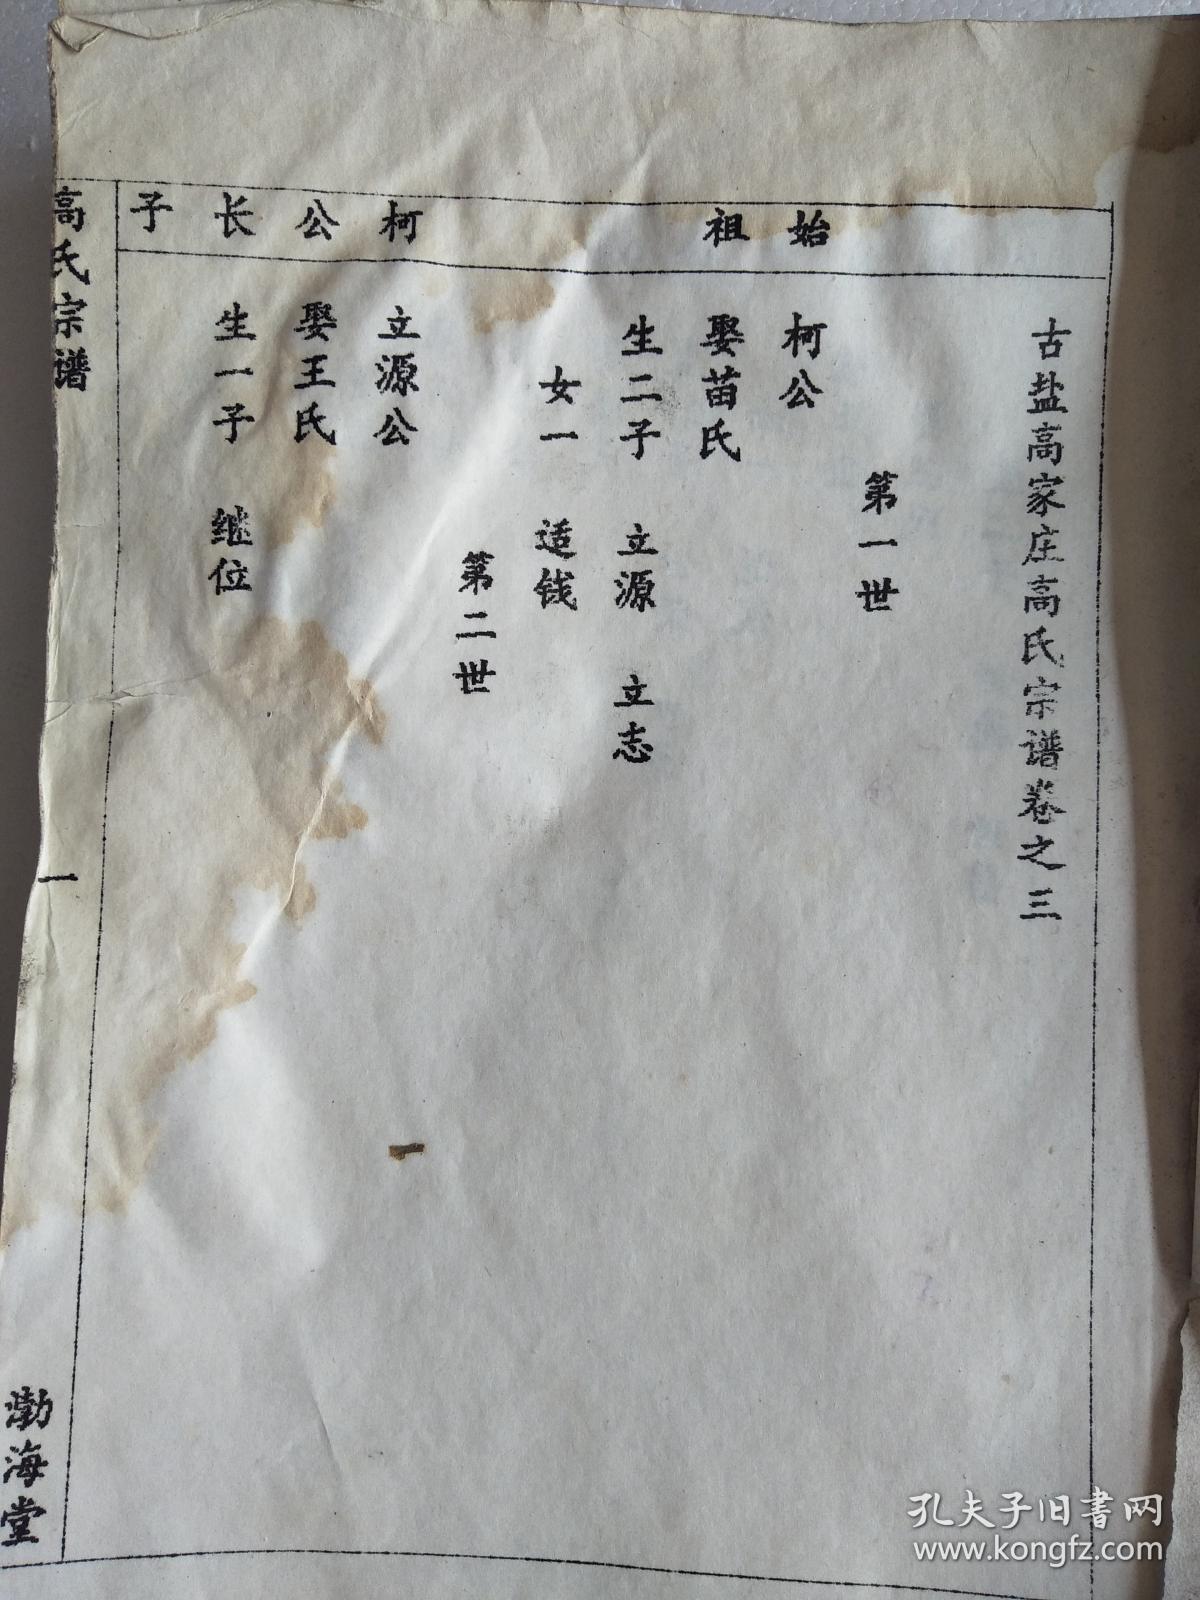 古盐高家庄高氏宗谱卷之三
第一世
始祖
柯公
娶苗氏
生二子 立源 立志
女一 适钱
第二世
柯公长子
立源公
娶王氏
生一子 继位
高氏宗谱
一
渤海堂
孔夫子旧书网
www.kongfz.com